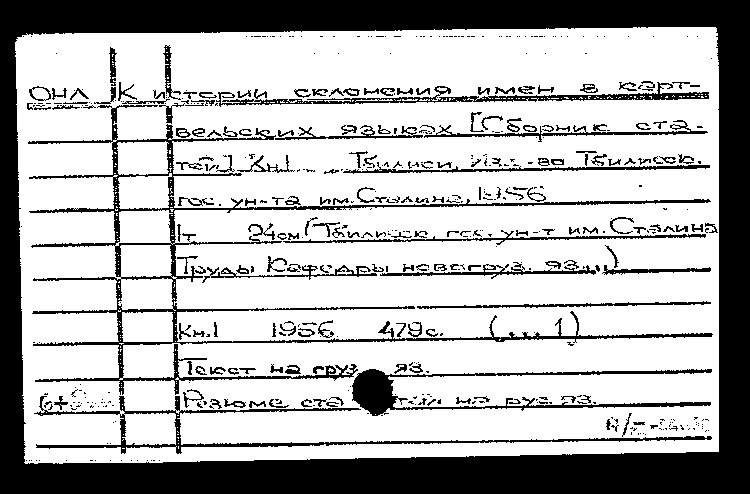 ОНЛ К истории склонения имен в карт-
вельских языках. [Сборник ста-
тей.] Кн.1 Тбилиси, Из-во Тбилисск.
гос. ун-та им. Сталина, 1956
1т 24см. (Тбилисск. гос. ун-т им. Сталина
Труды Кафедры новогруз. яз...)
Кн.1 1956 479с. (... 1)
Текст на груз. яз.
6+ Резюме статей на рус. яз.